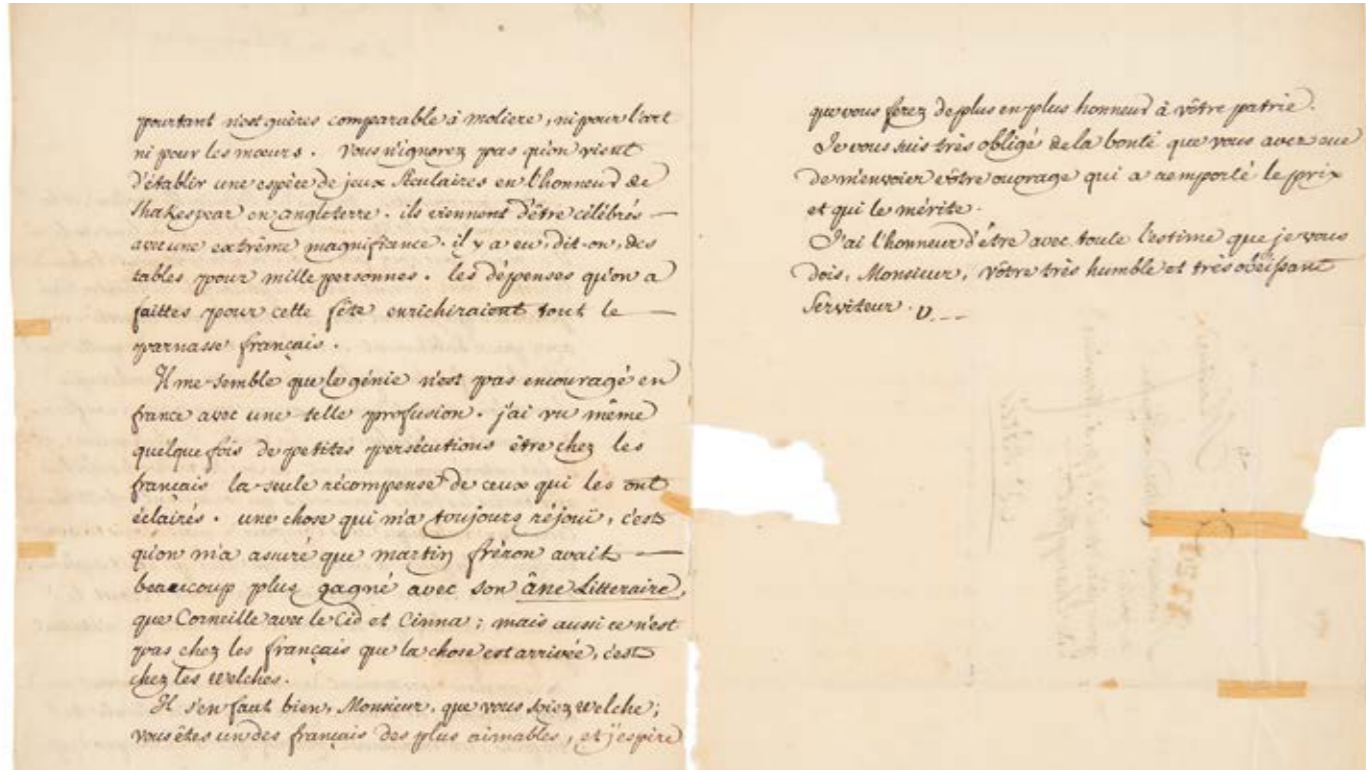 pourtant n'est guères comparable à moliere, ni pour l'art
ni pour les mœurs. Vous n'ignorez pas qu'on vient
d'établir une espèce de jeux séculaires en l'honneur de
Shakespear en angleterre. ils viennent d'être célébrés —
avec une extrême magnificence. il y a eu, dit-on, des
tables pour mille personnes. les dépenses qu'on a
faittes pour cette fête enrichiraient tout le —
parnasse français.
Il me semble que le génie n'est pas encouragé en
france avec une telle profusion. j'ai vu même
quelque fois de petites persécutions être chez les
français la seule récompense de ceux qui les ont
éclairés. une chose qui m'a toujours réjouï, c'est
qu'on m'a assuré que martin fréron avait —
beaucoup plus gagné avec son âne Litteraire,
que Corneille avec le Cid et Cinna; mais aussi ce n'est
pas chez les français que la chose est arrivée, c'est
chez les welches.
Il s'en faut bien, Monsieur, que vous soiez welche;
vous êtes un des français des plus aimables, et j'espère
que vous ferez de plus en plus honneur à vôtre patrie.
Je vous suis très obligé de la bonté que vous avez eue
de m'envoier vôtre ouvrage qui a remporté le prix
et qui le mérite.
J'ai l'honneur d'être avec toute l'estime que je vous
dois, Monsieur, vôtre très humble et très obéissant
serviteur. V. ---